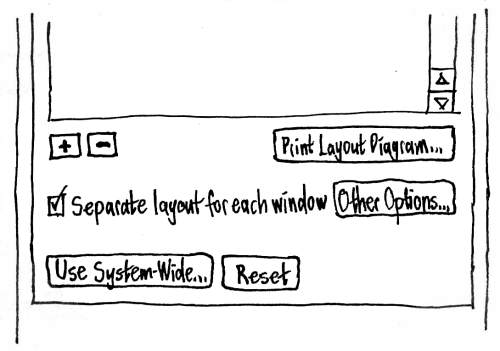 + -
Print Layout Diagram...
Separate layout for each window Other Options...
Use System-Wide... Reset